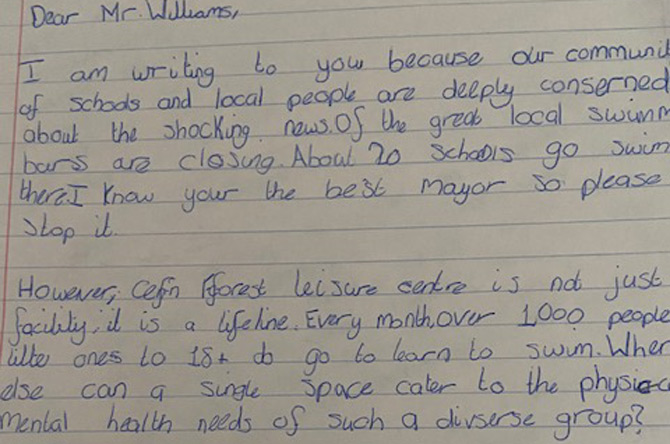 Dear Mr. Williams,
I am writing to you because our communit
of schools and local people are deeply conserned
about the shocking news. Of the great local swimm
bars are closing. About 20 schools go swim
there. I know your the best mayor so please
stop it.
However, Cefn Fforest leisure centre is not just
facility, it is a lifeline. Every month, over 1,000 people
little ones to 18+ do go to learn to swim. Wher
else can a single space cater to the physic
mental health needs of such a divserse group?